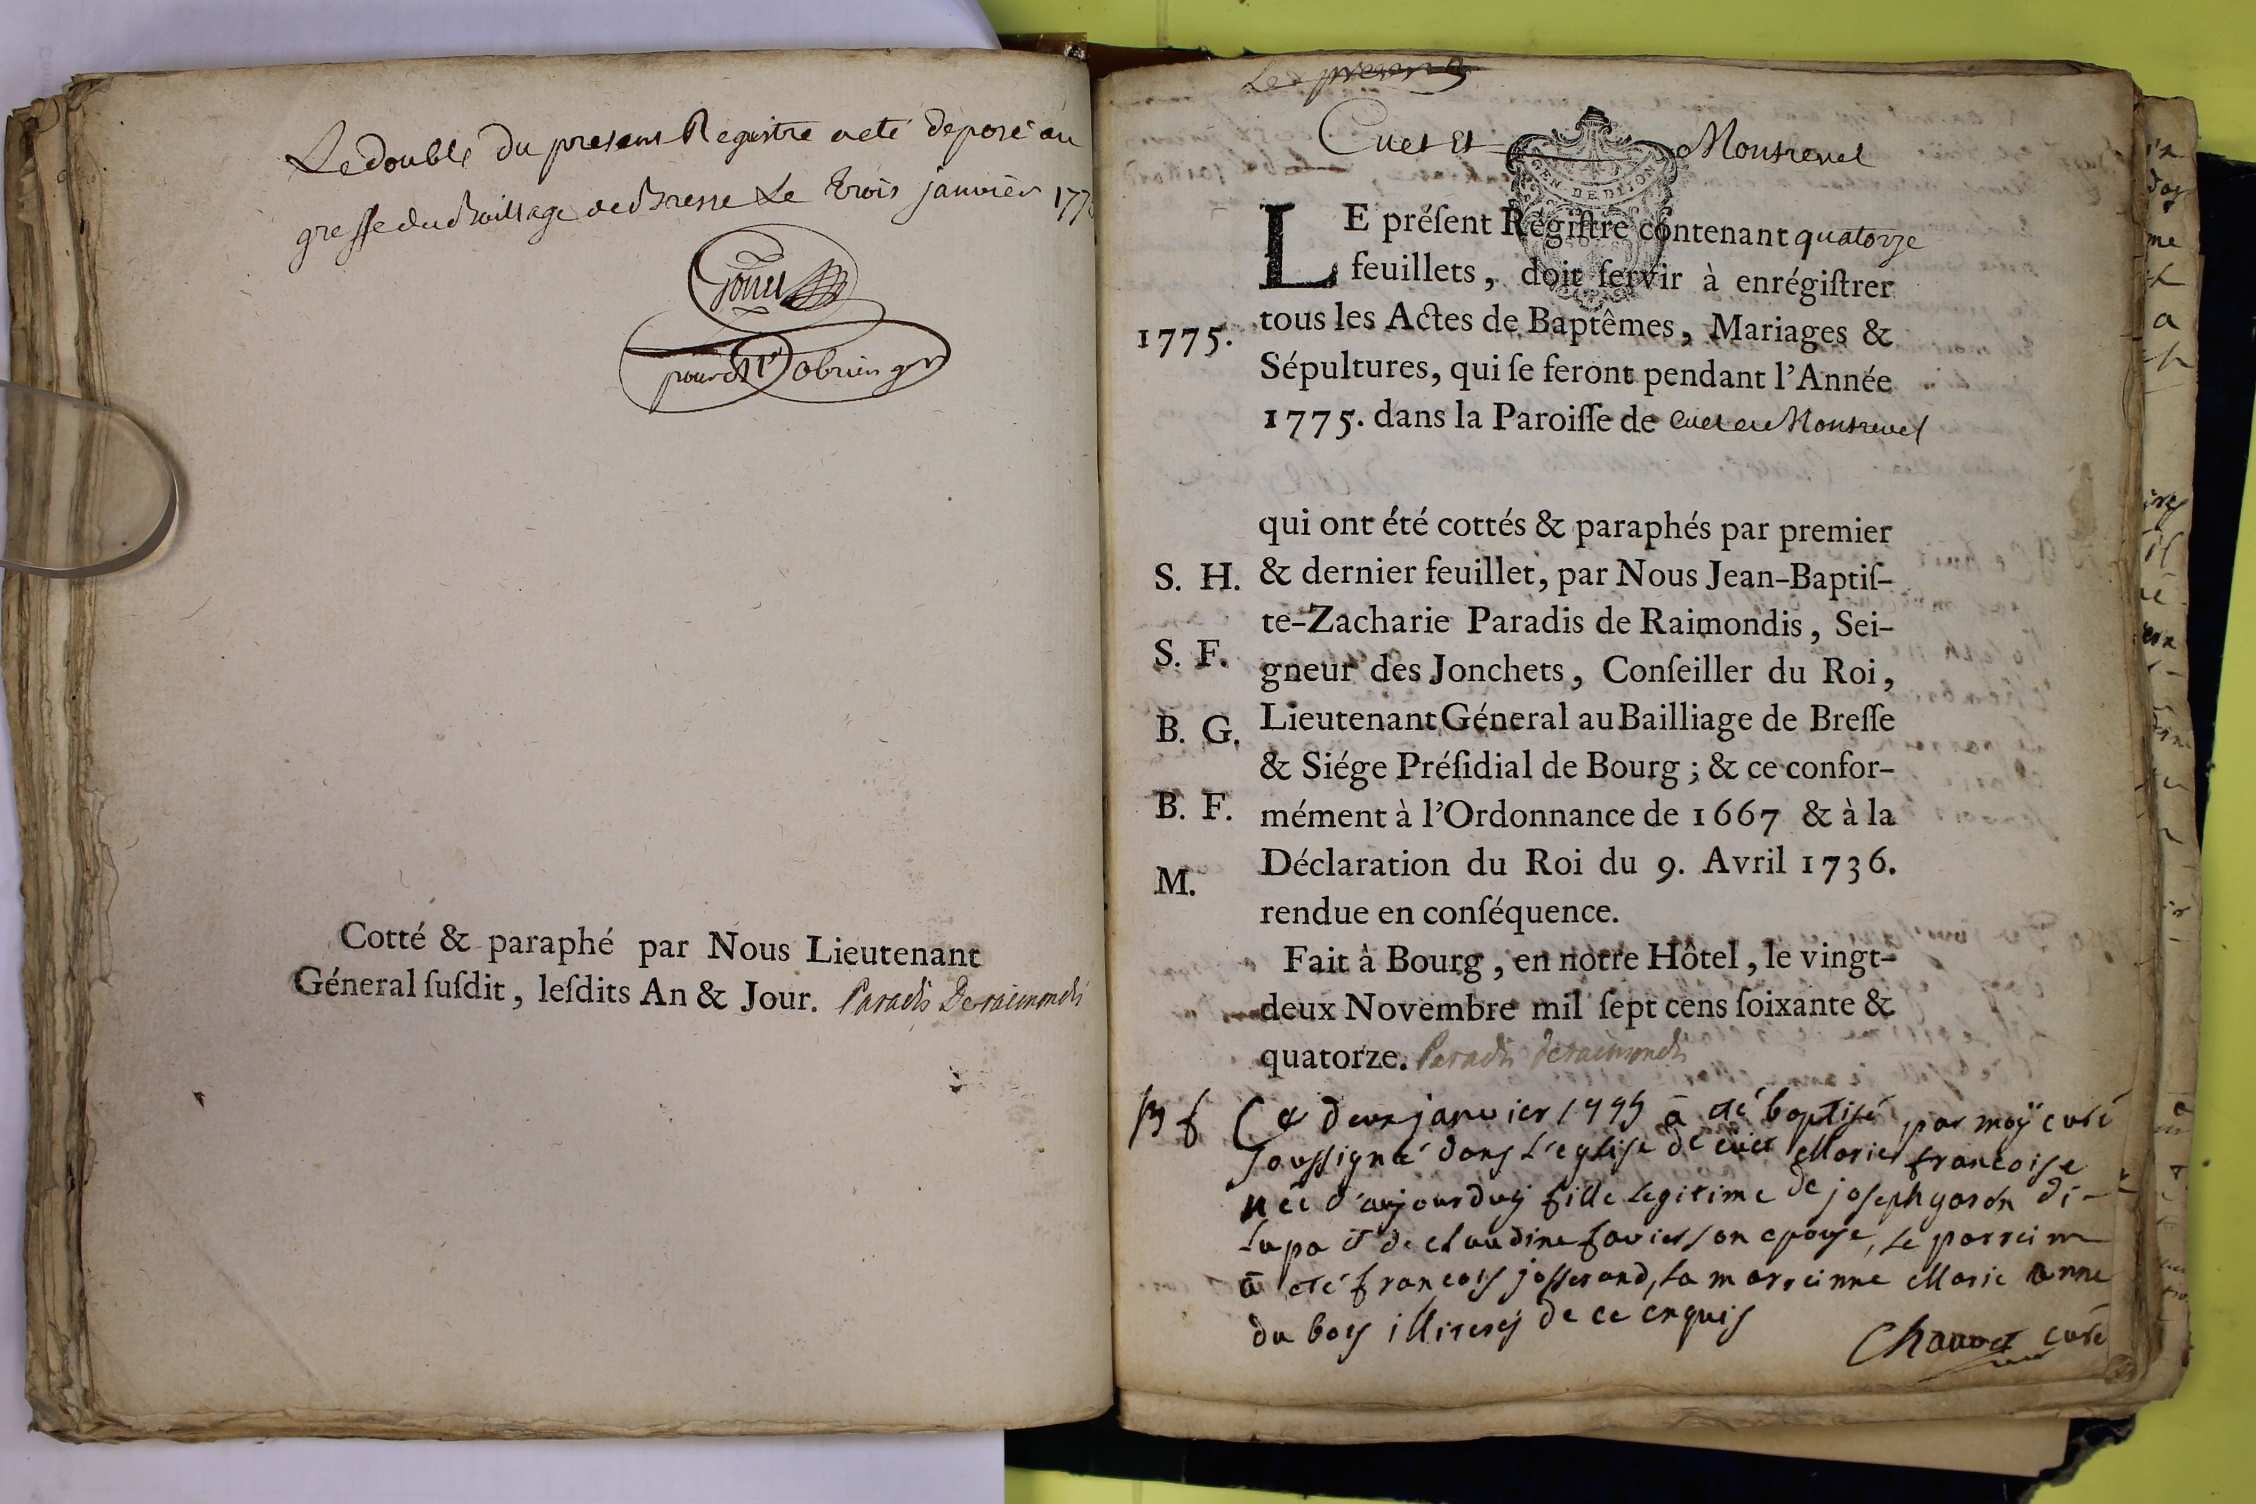 Le double du present Registre a eté deposé au
greffe du Bailliage de Bresse Le trois janvier 177
pour Mr Dobrien
Cotté & paraphé par Nous Lieutenant
Géneral ſuſdit, leſdits An & Jour. Paradis Deraimondis
Cuet Et Montrevel
EN DE DIJON
LE préſent Régiſtre contenant quatorze
feuillets, doit ſervir à enrégiſtrer
1775. tous les Actes de Baptêmes, Mariages &
Sépultures, qui ſe feront pendant l'Année
1775. dans la Paroiſſe de Cuet et Montrevel
qui ont été cottés & paraphés par premier
S. H. & dernier feuillet, par Nous Jean-Baptiſ-
te-Zacharie Paradis de Raimondis, Sei-
S. F. gneur des Jonchets, Conſeiller du Roi,
B. G. Lieutenant Géneral au Bailliage de Breſſe
& Siége Préſidial de Bourg; & ce confor-
B. F. mément à l'Ordonnance de 1667 & à la
M. Déclaration du Roi du 9. Avril 1736.
rendue en conſéquence.
Fait à Bourg, en notre Hôtel, le vingt-
deux Novembre mil ſept cens ſoixante &
quatorze. Paradis deraimondis
B f Ce deux janvier 1775 a eté baptisé par moÿ curé
soussigné dans l'eglise de cuet Marie francoise
née d'aujourduy fille legitime de joseph goron di
lupa et de claudine favier son epouse, le parrein
a eté francois josserand, la marreinne Marie Anne
du bois illiterés de ce enquis
Chauvet curé